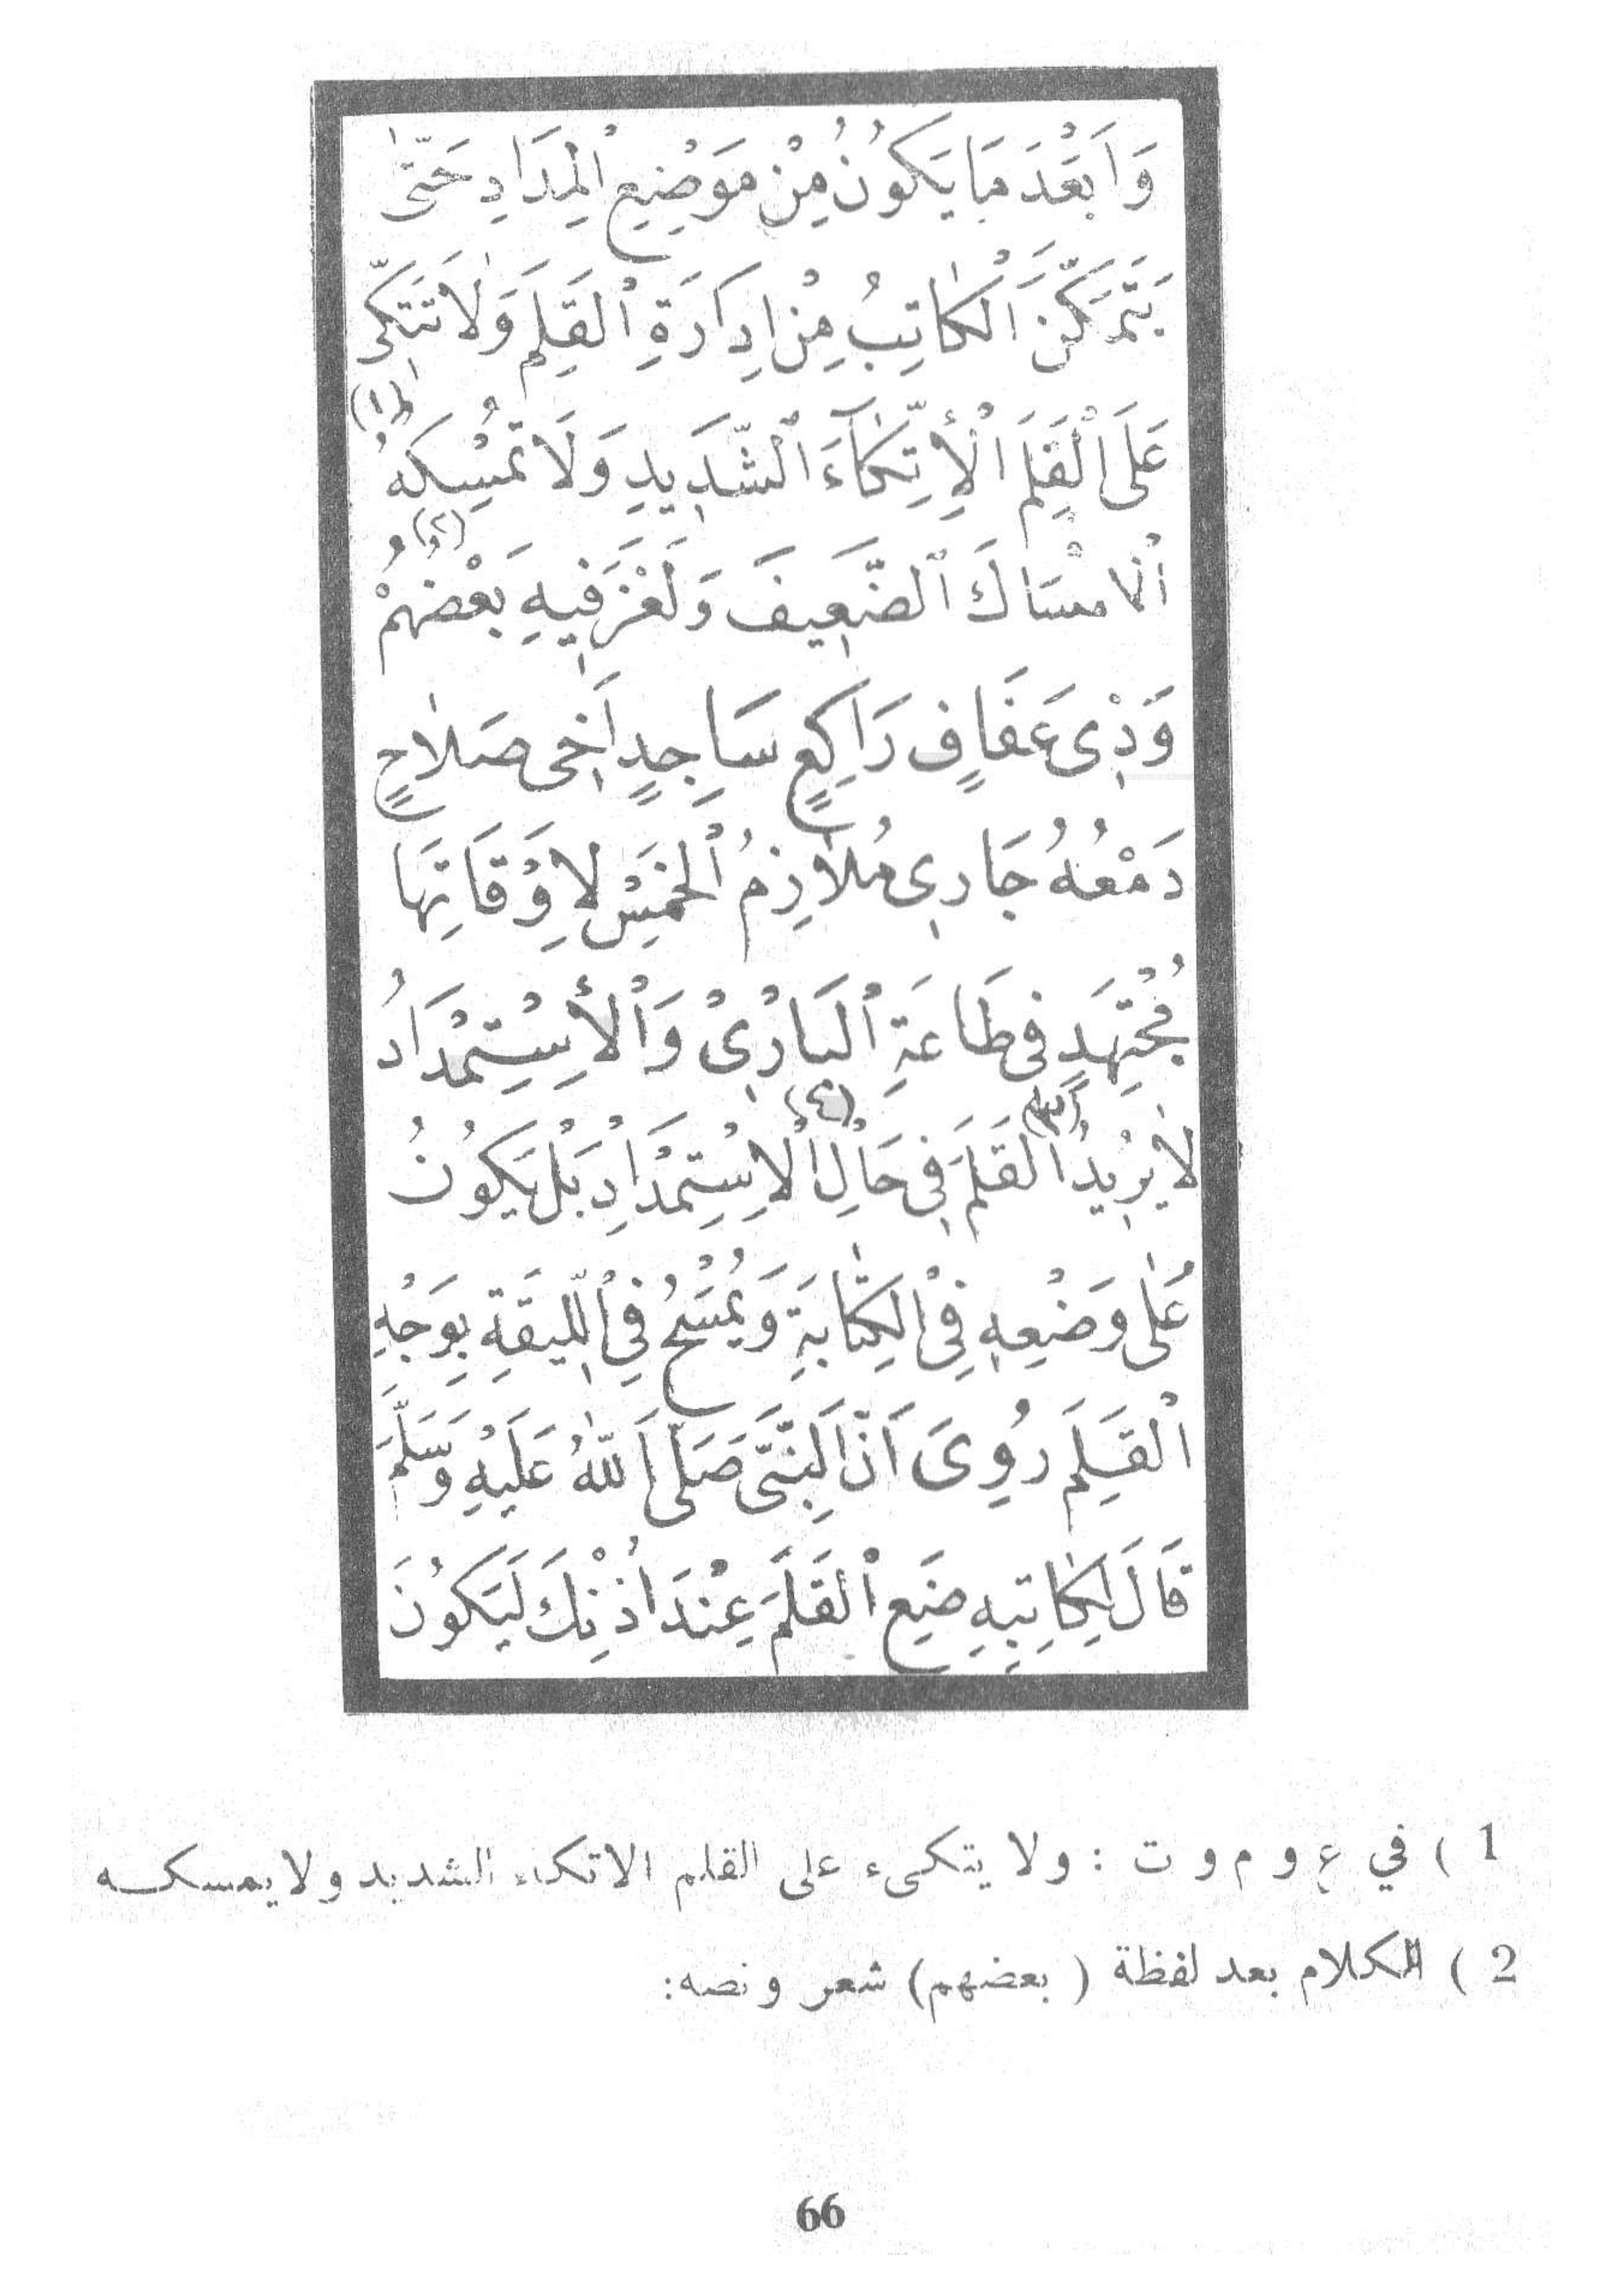 وَاَبْعَدَ مَا يَكُونُ مِنْ مَوْضِعِ الْمِدَادِ حَتّٰى
يَتَمَكَّنَ الْكَاتِبُ مِنْ اِدَارَةِ الْقَلَمِ وَلَا تَتَّكِى
عَلَى الْقَلَمِ الْأِتِّكَآءَ الشَّدِيدِ وَلَا تَمْسِكُهُ (١)
اْلاِمْسَاكَ الضَّعِيفَ وَلَغَزَ فِيهِ بَعْضُهُمْ (٢)
وَذِىْ عَفَافٍ رَاكِعٍ سَاجِدٍ اَخِى صَلَاحٍ
دَمْعُهُ جَارِى مُلَازِمُ الْخَمْسِ لِاَوْقَاتِهَا
مُجْتَهِدٍ فِى طَاعَةِ الْبَارِىْ وَالْأِسْتِمْدَادُ
لَا يُرِيدُ (٣) الْقَلَمَ فِى حَالِ (٤) الْاِسْتِمْدَادِ بَلْ يَكُونُ
عَلٰى وَضْعِهِ فِى الْكِتَابَةِ وَيُمْسَحُ فِى اللِّيقَةِ بِوَجْهِ
الْقَلَمِ رُوِىَ اَنَّ النَّبِىَّ صَلَّى اللّٰهُ عَلَيْهِ وَسَلَّمَ
قَالَ لِكَاتِبِهِ ضَعِ الْقَلَمَ عِنْدَ اُذْنِكَ لَيَكُونَ
1 ) في ع و م و ت : ولا يتكىء على القلم الاتكاء الشديد ولا يمسكـــه
2 ) الكلام بعد لفظة ( بعضهم) شعر ونصه:
66